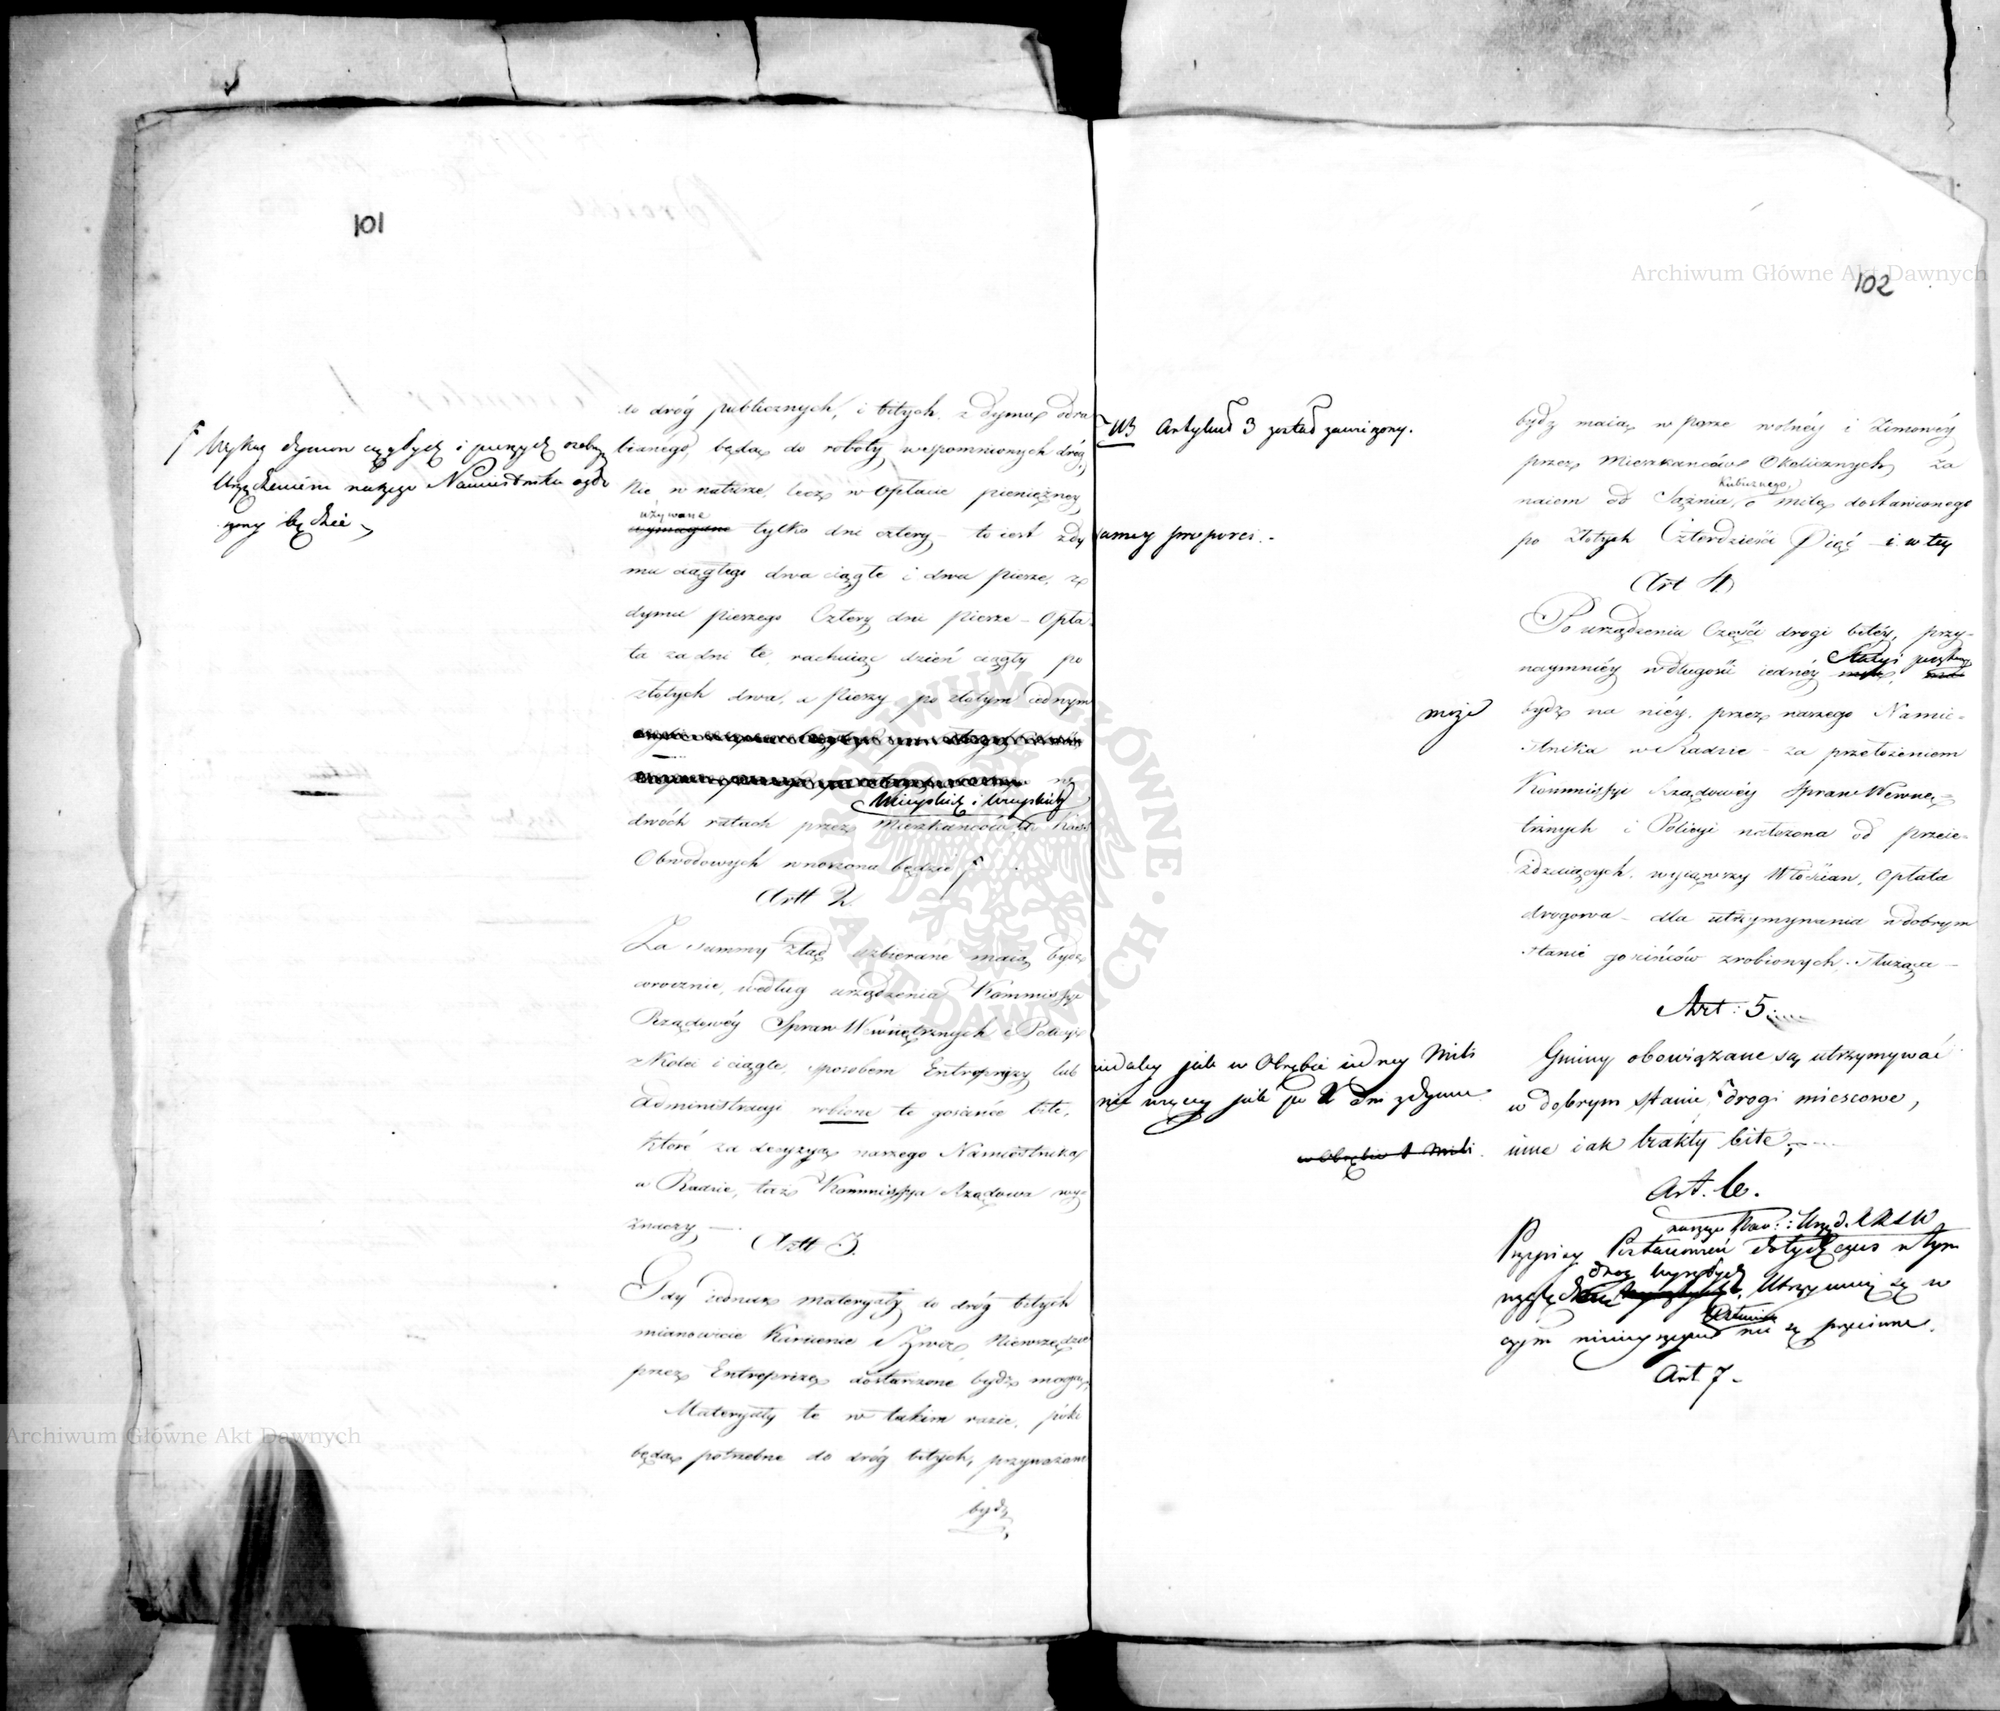 101
Wykaz dymow ciągłych i pieszych osobnym
Urządzeniem naszego Namiestnika ogło
szony będzie
to dróg publicznych, i bitych z dymu odra
bianego, będą do roboty wspomnionych dróg,
Nie w naturze, lecz w Opłacie pieniężney
używane
wymagane tylko dni cztery – to iest z dy
mu ciągłego dwa ciągłe i dwa piesze, z
dymu pieszego Cztery dni piesze – Opła
ta za dni te, rachuiąc dzień ciągły po
złotych dwa, a pieszy po złotym iednym
w
Mieyskich i Wieyskich
dwóch ratach przez Mieszkańców, do Kass
Obwodowych wnoszona będzie
Artt 2.
Za summy ztąd uzbierane maią bydź
corocznie, według urządzenia Kommissyi
Rządowéy Spraw Wewnętrznych i Policyi
z Kolei i ciągle, sposobem Entrepryzy lub
Administracyi robione te gościńce bite,
które za decyzyą naszego Namiestnika
w Radzie, taż Kommissya Rządowa wy
znaczy —
Artt 3.
Gdy iednak materyały do dróg bitych
mianowicie Kamienie i Żwir, Niewszędzie
przez Entrepryzę dostarczone bydź mogą,
Materyały te w takim razie, póki
będą potrzebne do dróg bitych, przywożone
bydź
102
NB Artykuł 3 został zawieszony.
samey proporcí. -
może
niedaley jak w Obrębie iedney Mili
nie więcey jak po 2 dni z dymu
w Obrębie 1 Mili
bydź maią w porze wolnéy i Zimowéy
przez Mieszkańców Okolicznych za
Kubicznego,
naiem od Sążnia, o milę dostawionego
po Złotych Czterdzieści Pięć – i w tey
Art 4
Po urządzeniu Części drogi bitéy, przy-
Stacyi pocztowey
naymniéy w długości iednéy mili,
bydź na niéy, przez naszego Namie-
stnika w Radzie – za przełożeniem
Kommissyi Rządowéy Spraw Wewnę-
trznych i Policyi nałożona od przeie-
żdżaiących, wyiąwszy Włościan, Opłata
drogowa – dla utrzymywania w dobrym
stanie gościńców zrobionych służąca —
Art: 5.
Gminy obowiązane są utrzymywać
w dobrym stanie drogi miescowe,
inne iak trakty bite,
Art. 6.
naszego Nam: : Urząd. KRSW
Przepisy Postanowień dotychczas w tym
dróg
względzie Utrzymuią się w
czym ninieyszemu nie są przeciwne.
Art 7 -
Archiwum Główne Akt Dawnych
Archiwum Główne Akt Dawnych
ARCHIWUM GŁÓWNE AKT DAWNYCH